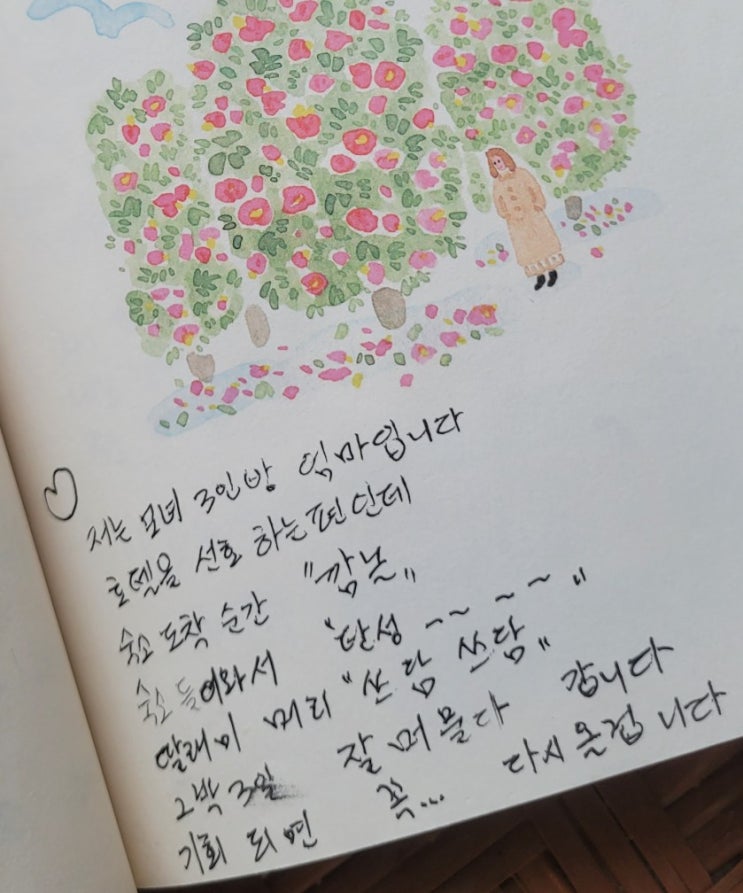 ♡ 저는 모녀 3인방 엄마입니다
호텔을 선호 하는편인데
숙소 도착 순간 "깜놀"
숙소 들어와서 "탄성 ~~ ~ ~"
딸래미 머리 "쓰담 쓰담"
2박 3일 잘 머물다 갑니다
기회 되면 꼭... 다시올겁 니다